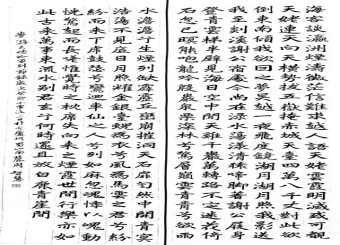 海客談瀛洲煙濤微茫信難求越人語天姥雲霞明滅或可覩
天姥連天向天橫勢拔五嶽掩赤城天台四萬八千丈對此欲
倒東南傾我欲因之夢吳越一夜飛度鏡湖月湖月照我影送
我至剡溪謝公宿處今尚在淥水蕩漾清猿啼腳著謝公屐身
登青雲梯半壁見海日空中聞天雞千巖萬轉路不定迷花倚
石忽已暝熊咆龍吟殷巖泉慄深林兮驚層巔雲青青兮欲雨
水澹澹兮生煙列缺霹靂丘巒崩摧洞天石扉訇然中開青冥
浩蕩不見底日月照耀金銀臺霓爲衣兮風爲馬雲之君兮紛
紛而來下虎鼓瑟兮鸞回車仙之人兮列如麻忽魂悸以魄動
怳驚起而長嗟惟覺時之枕席失向來之煙霞世間行樂亦如
此古來萬事東流水別君去兮何時還且放白鹿青崖間
夢游天姥吟留別